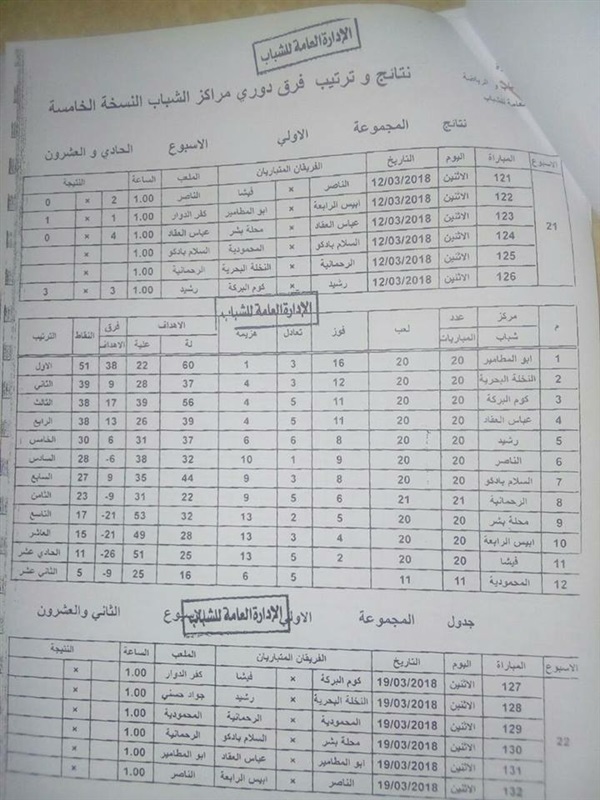 الإدارة العامة للشباب
نتائج و ترتيب فرق دوري مراكز الشباب النسخة الخامسة
نتائج المجموعة الاولي الاسبوع الحادي و العشرون
الاسبوع المباراة اليوم التاريخ الفريقان المتباريان الملعب الساعة النتيجة
21
121 الاثنين 12/03/2018 الناصر × فيشا الناصر 1.00 2 × 0
122 الاثنين 12/03/2018 ابيس الرابعة × ابو المطامير كفر الدوار 1.00 1 × 1
123 الاثنين 12/03/2018 عباس العقاد × محلة بشر عباس العقاد 1.00 4 × 0
124 الاثنين 12/03/2018 السلام بادكو × المحمودية السلام بادكو 1.00 ×
125 الاثنين 12/03/2018 الرحمانية × النخلة البحرية الرحمانية 1.00 ×
126 الاثنين 12/03/2018 رشيد × كوم البركة رشيد 1.00 3 × 3
الإدارة العامة للشباب
م مركز شباب عدد المباريات لعب فوز تعادل هزيمة الاهداف فرق الاهداف النقاط الترتيب
لة علية
1 ابو المطامير 20 20 16 3 1 60 22 38 51 الاول
2 النخلة البحرية 20 20 12 3 4 37 28 9 39 الثاني
3 كوم البركة 20 20 11 5 4 56 39 17 38 الثالث
4 عباس العقاد 20 20 11 5 4 39 26 13 38 الرابع
5 رشيد 20 20 8 6 6 37 31 6 30 الخامس
6 الناصر 20 20 9 1 10 32 38 -6 28 السادس
7 السلام بادكو 20 20 8 3 9 44 35 9 27 السابع
8 الرحمانية 21 21 6 5 9 22 31 -9 23 الثامن
9 محلة بشر 20 20 5 2 13 32 53 -21 17 التاسع
10 ابيس الرابعة 20 20 3 4 13 28 49 -21 15 العاشر
11 فيشا 20 20 2 5 13 25 51 -26 11 الحادي عشر
12 المحمودية 11 11 5 6 16 25 -9 5 الثاني عشر
جدول المجموعة الاولي الثاني والعشرون
الإدارة العامة للشباب
الاسبوع المباراة اليوم التاريخ الفريقان المتباريان الملعب الساعة النتيجة
22
127 الاثنين 19/03/2018 كوم البركة × فيشا كفر الدوار 1.00 ×
128 الاثنين 19/03/2018 النخلة البحرية × رشيد جواد حسني 1.00 ×
129 الاثنين 19/03/2018 المحمودية × الرحمانية المحمودية 1.00 ×
130 الاثنين 19/03/2018 محلة بشر × السلام بادكو الرحمانية 1.00 ×
131 الاثنين 19/03/2018 ابو المطامير × عباس العقاد ابو المطامير 1.00 ×
132 الاثنين 19/03/2018 الناصر × ابيس الرابعة الناصر 1.00 ×